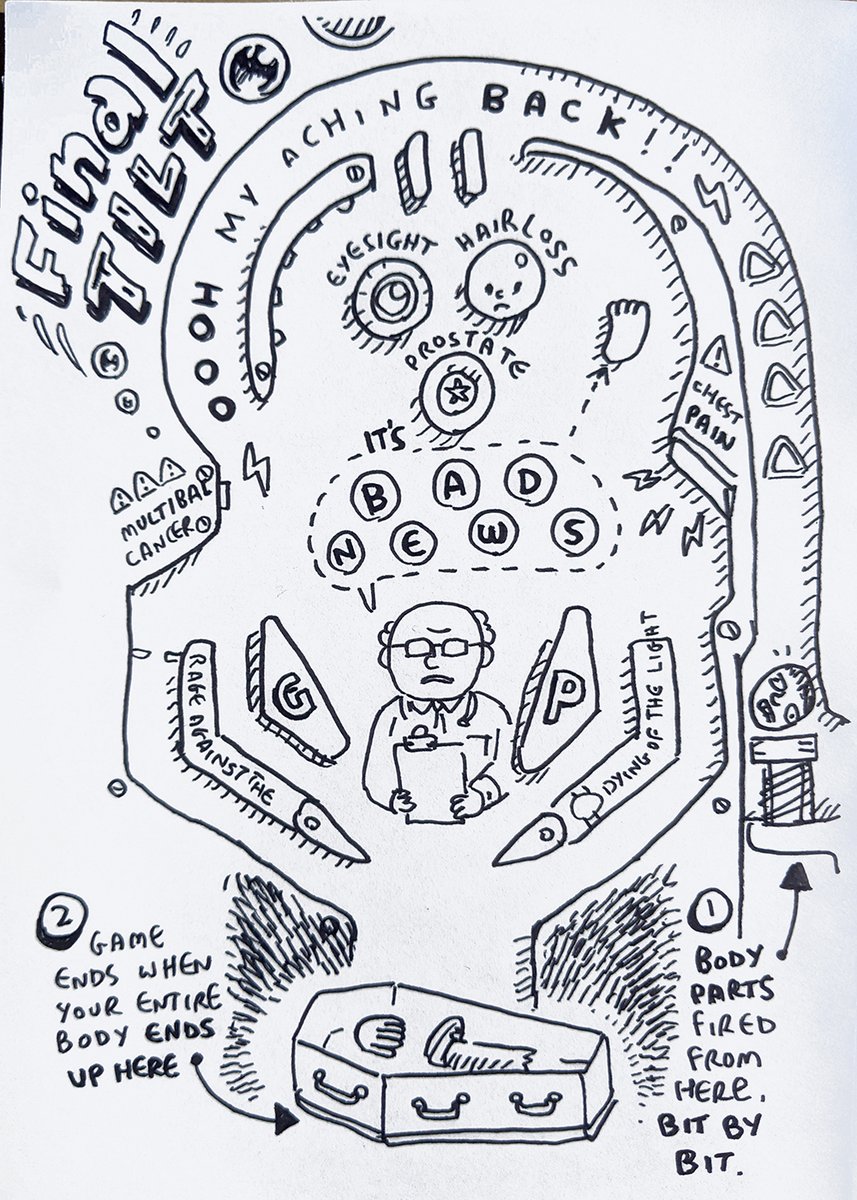 Final
TILT
OOOH MY ACHING BACK!!
EYESIGHT
HAIRLOSS
PROSTATE
CHEST
PAIN
IT'S
BAD
NEWS
MULTIBAL
CANCER
G
P
RAGE AGAINST THE
DYING OF THE LIGHT
1
BODY
PARTS
FIRED
FROM
HERE.
BIT BY
BIT.
2
GAME
ENDS WHEN
YOUR ENTIRE
BODY ENDS
UP HERE